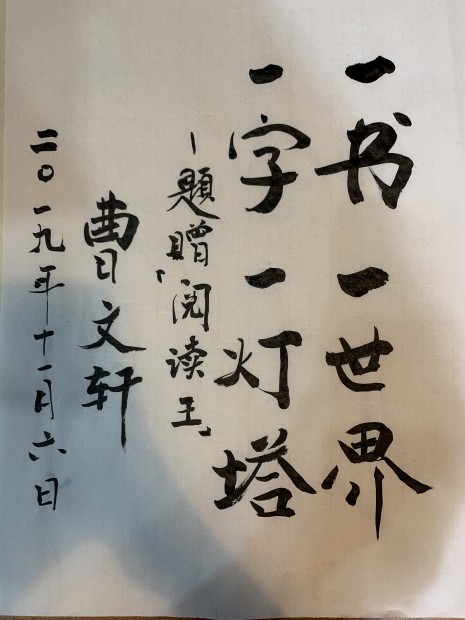 一书一世界
一字一灯塔
—题赠「阅读王」
曹文轩
二〇一九年十一月六日